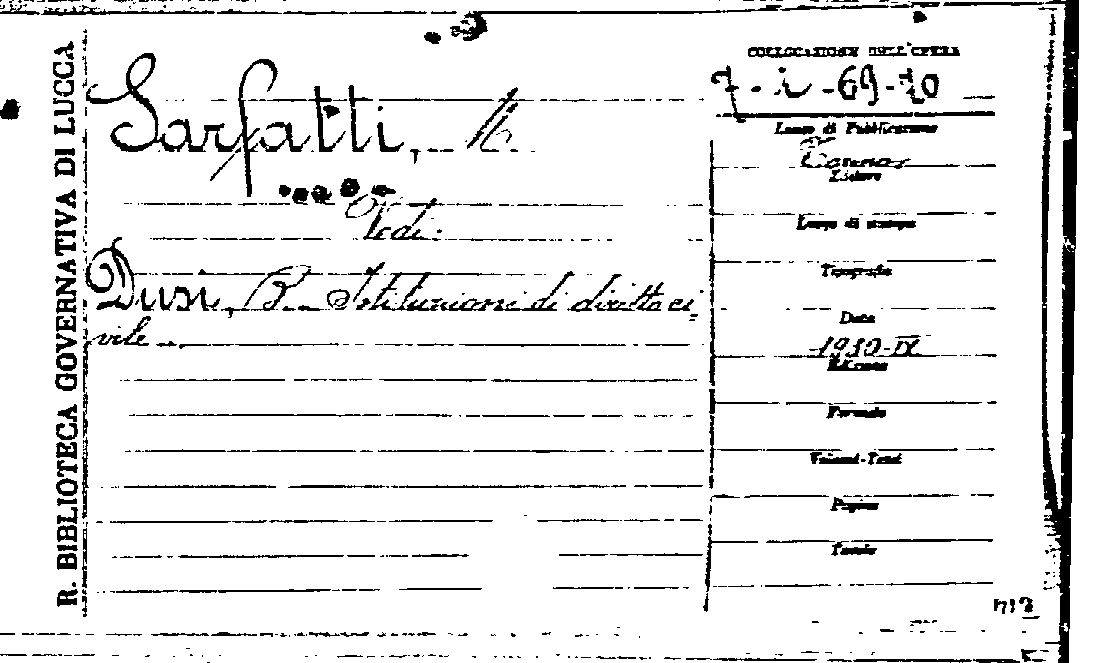 R. BIBLIOTECA GOVERNATIVA DI LUCCA
Sarfatti, M.
Vedi:
Dusi, B. - Istituzioni di diritto ci-
vile -.
COLLOCAZIONE DELL'OPERA
7-i-69-70
Luogo di Pubblicazione
Torino
Editore
Luogo di stampa
Tipografia
Data
1930-IX
Edizione
Formato
Volumi-Tomi
Pagine
Tavole